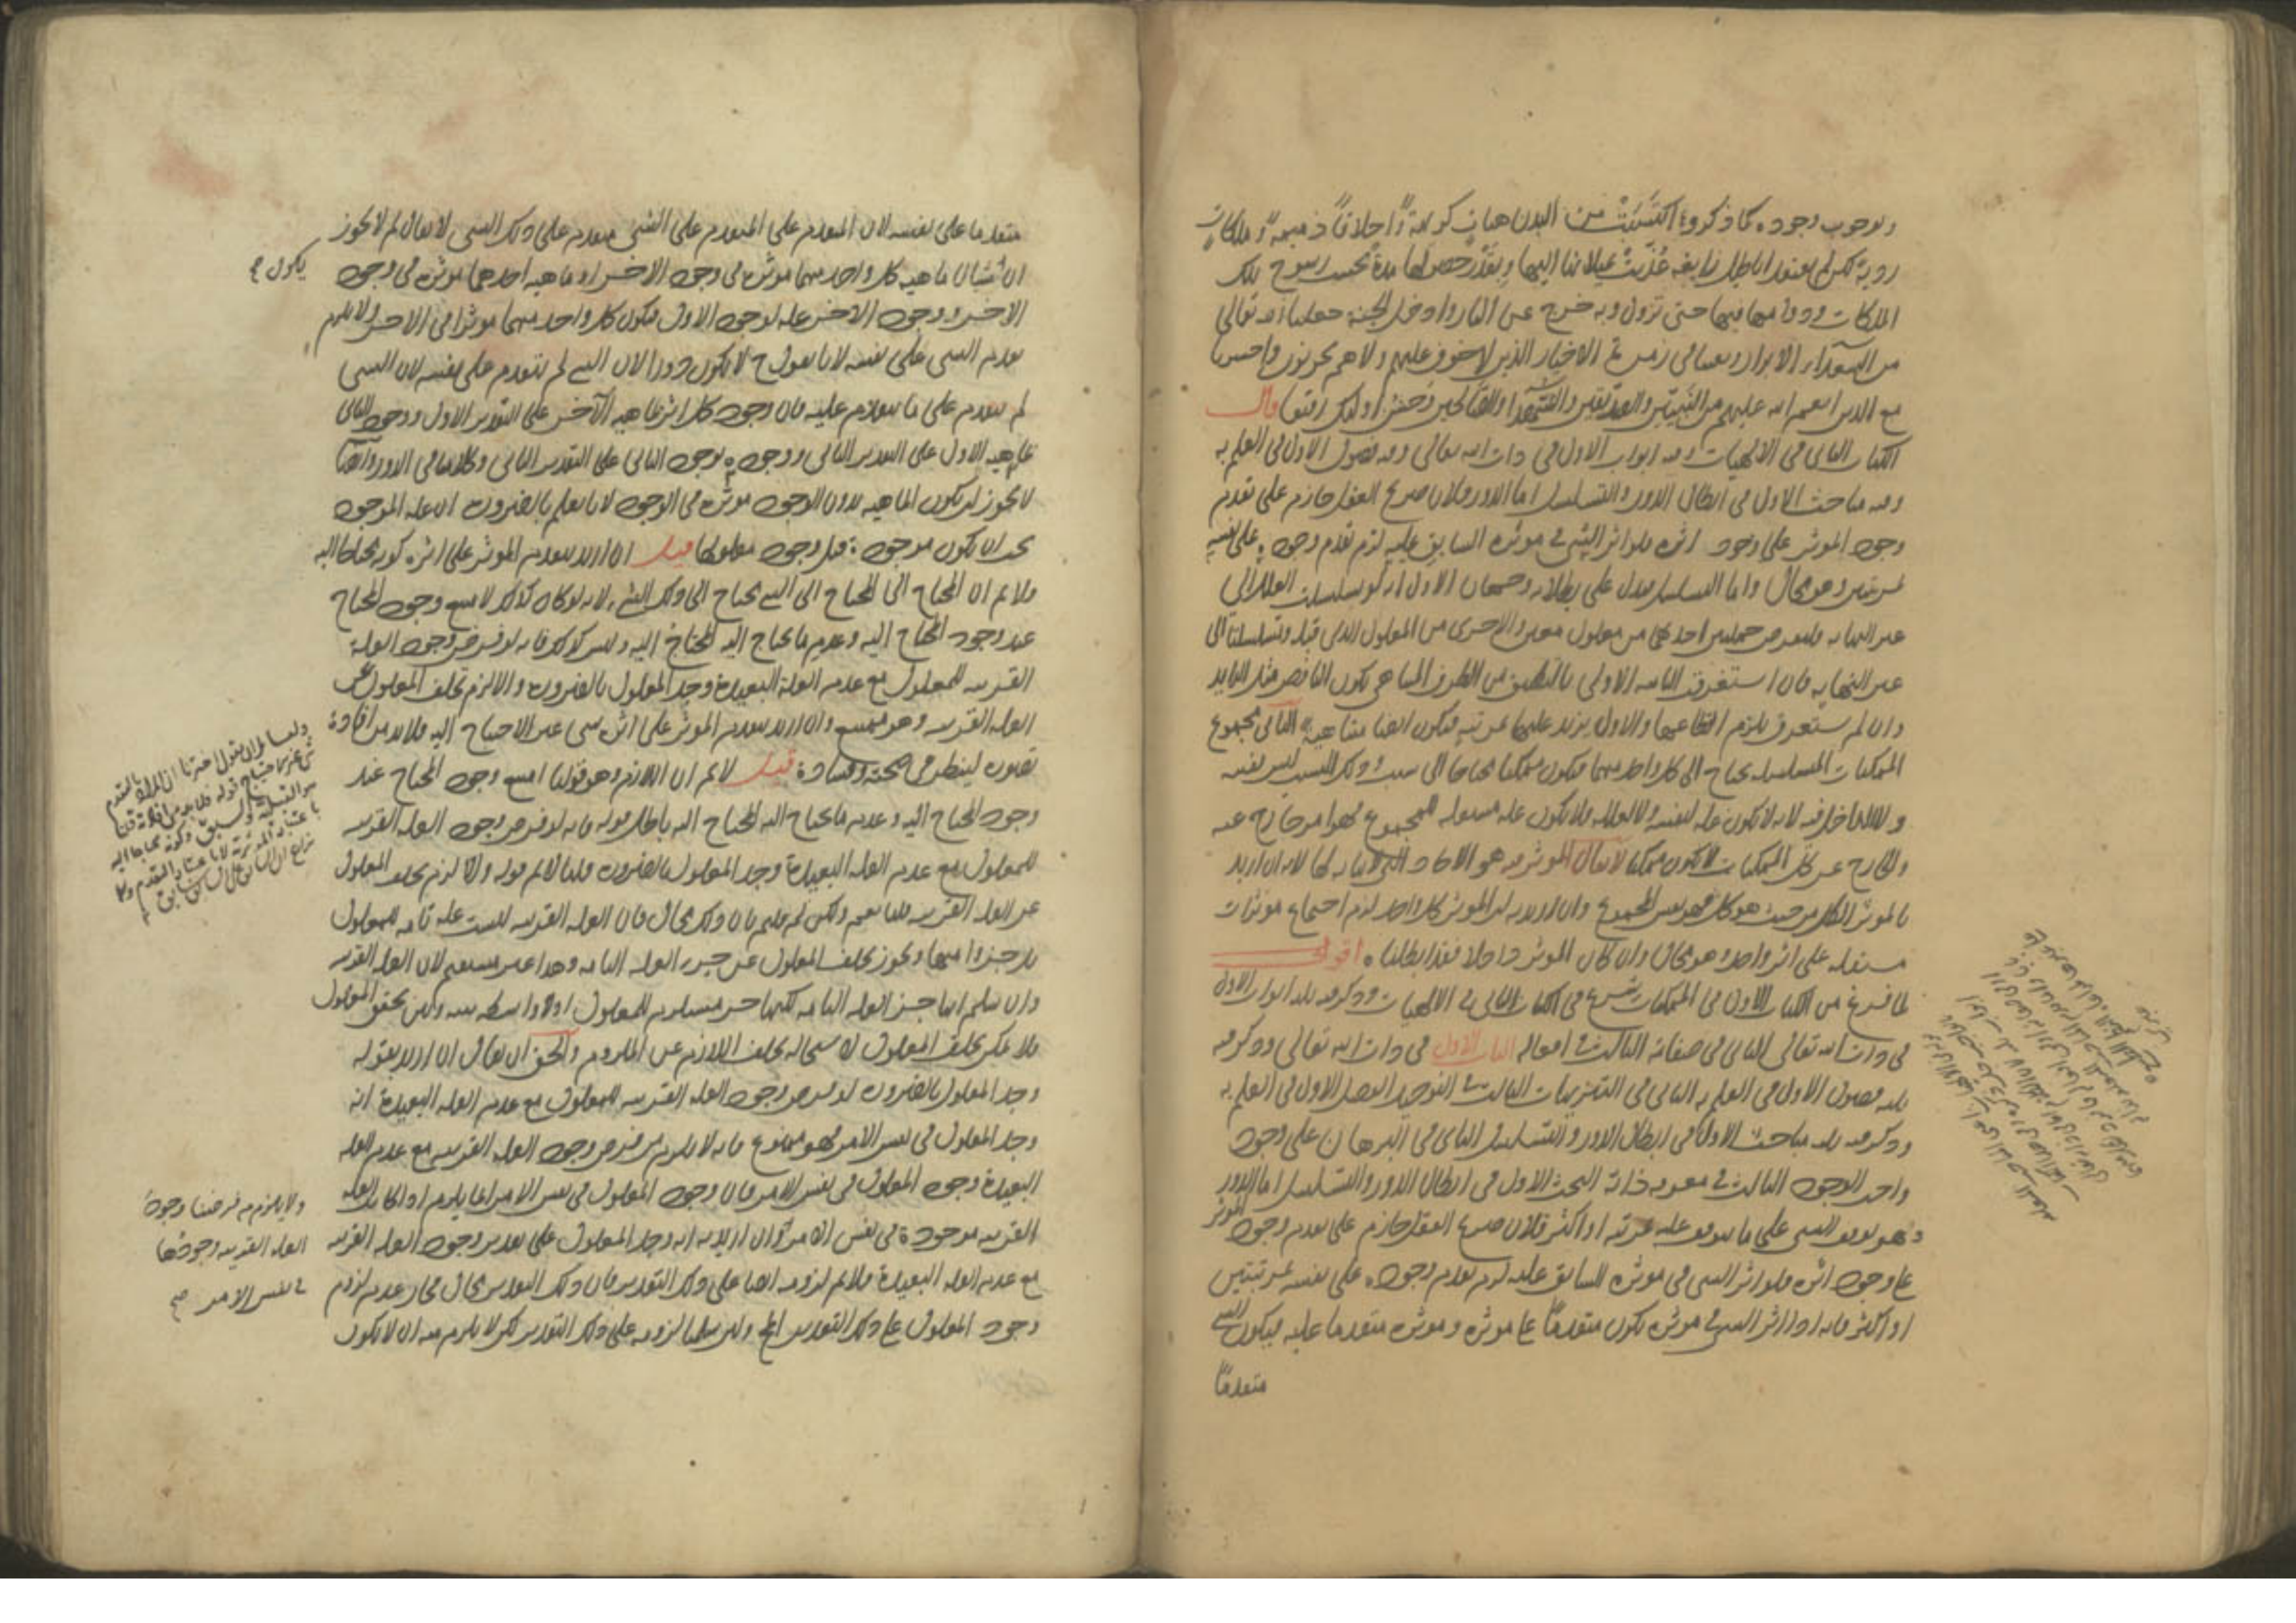 وبوجوب وجوده كما ذكروه اكتسبت من البدن هيات كريهة واخلاقا ذميمة وملكات
ردية لكن لم يعتقد اباطيل زايغة عذبت بميلانها اليها وتعذر حصولها مدة بحسب رسوخ تلك
الملكات ودوامها فيها حتى تزول وبه خرج عن النار وادخل الجنة جعلنا الله تعالى
من السعداء الابرار وبعثنا فى زمرة الاخيار الذين لا خوف عليهم ولا هم يحزنون واحسرنا
مع الذين انعم الله عليهم من النبيين والصديقين والشهداء والصالحين وحسن اولئك رفيقا قال
الكتاب الثانى فى الالهيات وفيه ابواب الاول فى ذات الله تعالى وفيه فصول الاول فى العلم به
وفيه مباحث الاول فى ابطال الدور والتسلسل اما الدور فلان صريح العقل جازم على تقدم
وجود الموثر على وجود اثره فلو اثر الشى فى موثره السابق عليه لزم تقدم وجوده على نفسه
بمرتبتين وهو محال واما التسلسل فيدل على بطلانه وجهان الاول انه لو تسلسلت العلل الى
غير النهاية فلنفرض جملتين احديهما من معلول معين والاخرى من المعلول الذى قبله وتسلسلتا الى
غير النهاية فان استغرقت الثانية الاولى بالتطبيق من الطرف المتناهى يكون الناقص مثل الزايد
وان لم يستغرق يلزم انقطاعها والاول يزيد عليها بمرتبة فيكون ايضا متناهية الثانى مجموع
الممكنات المتسلسلة يحتاج الى كل واحد منها فيكون ممكنا محتاجا الى سبب وذلك السبب ليس نفسه
ولا الداخل فيه لانه لا يكون علة لنفسه ولا لعلله فلا يكون علة مستقلة للمجموع فهو امر خارج عنه
والخارج عن كل الممكنات لا يكون ممكنا لا يقال الموثر فيه هو الاحاد التى لا نهاية لها لانه ان اريد
بالموثر الكل من حيث هو كل فهو نفس المجموع وان اريد به ان الموثر كل واحد لزم اجتماع موثرات
مستقلة على اثر واحد وهو محال وان كان الموثر داخلا فقد ابطلناه اقول
لما فرغ من الكتاب الاول فى الممكنات شرع فى الكتاب الثانى فى الالهيات وذكر فيه ثلثة ابواب الاول
فى ذات الله تعالى الثانى فى صفاته الثالث فى افعاله الباب الاول فى ذات الله تعالى وذكر فيه
ثلثة فصول الاول فى العلم به الثانى فى التنزيهات الثالث فى التوحيد الفصل الاول فى العلم به
وذكر فيه ثلثة مباحث الاول فى ابطال الدور والتسلسل الثانى فى البرهان على وجود
واجب الوجود الثالث فى معرفة ذاته البحث الاول فى ابطال الدور والتسلسل اما الدور
وهو توقف الشى على ما يتوقف عليه بمرتبة او اكثر فلان صريح العقل جازم على تقدم وجود الموثر
على وجود اثره فلو اثر الشى فى موثره السابق عليه لزم تقدم وجوده على نفسه بمرتبتين
او اكثر فانه اذا اثر الشى فى موثره يكون متقدما على موثره وموثره متقدما عليه فيكون الشى
متقدما
متقدما على نفسه لان المتقدم على المتقدم على الشى متقدم على ذلك الشى لا يقال لم لا يجوز
يكون صح
ان شيئان ماهية كل واحد منهما موثرة فى وجود الاخر او ماهية احدهما موثرة فى وجود
الاخر ووجود الاخر علة لوجود الاول فيكون كل واحد منهما موثرا فى الاخر ولا يلزم
تقدم الشى على نفسه لانا نقول ح لا يكون دورا لان الشى لم يتقدم على نفسه لان الشى
لم يتقدم على ما يتقدم عليه فان وجود كل اثر ماهية الآخر على التقدير الاول ووجود الثانى
ماهية الاول على التقدير الثانى ووجوده بوجود الثانى على التقدير الثانى وكلامنا فى الدور وايضا
لا يجوز ان يكون الماهية بدون الوجود موثرة فى الوجود لانا نعلم بالضرورة ان علة الموجود
يجب ان يكون موجودة قبل وجود معلولها قيل ان اريد بتقدم الموثر على اثره كونه محتاجا اليه
فلا نم ان المحتاج الى المحتاج الى الشى يحتاج الى ذلك الشى لانه لو كان كذلك لامتنع وجود المحتاج
عند وجود المحتاج اليه وعدم ما يحتاج اليه المحتاج اليه وليس كذلك فانه لو فرض وجود العلة
القريبة للمعلول مع عدم العلة البعيدة وجد المعلول بالضرورة والا لزم تخلف المعلول عن
العلة القريبة وهو ممتنع وان اريد بتقدم الموثر على اثره شى غير الاحتياج اليه فلا بد من افادة
تصوره لينظر فى صحته وفساده قيل لا نم ان اللازم وهو قولنا امتنع وجود المحتاج عند
وجود المحتاج اليه وعدم ما يحتاج اليه المحتاج اليه باطل قوله فانه لو فرض وجود العلة القريبة
للمعلول مع عدم العلة البعيدة وجد المعلول بالضرورة قلنا لا نم قوله والا لزم تخلف المعلول
عن العلة القريبة قلنا نعم ولكن لم قلتم بان ذلك محال فان العلة القريبة ليست علة تامة للمعلول
بل جزءا منها ويجوز تخلف المعلول عن جزء العلة التامة وهذا غير مستقيم لان العلة القريبة
وان سلم انها جزء العلة التامة لكنها جزء مستلزم للمعلول اذ لا واسطة بينه وبين تحقق المعلول
فلا يمكن تخلف المعلول لاستحالة تخلف اللازم عن الملزوم والحق ان يقال ان اريد بقوله
وجد المعلول بالضرورة لو فرض وجود العلة القريبة للمعلول مع عدم العلة البعيدة انه
وجد المعلول فى نفس الامر فهو ممنوع فانه لا يلزم من فرض وجود العلة القريبة مع عدم العلة
البعيدة وجود المعلول فى نفس الامر فان وجود المعلول فى نفس الامر انما يلزم اذا كانت العلة
القريبة موجودة فى نفس الامر وان اريد به انه وجد المعلول على تقدير وجود العلة القريبة
مع عدم العلة البعيدة فلا نم لزومه ايضا على ذلك التقدير فان ذلك التقدير محال فجاز عدم لزوم
وجود المعلول على ذلك التقدير المح ولئن سلمنا لزومه على ذلك التقدير لكن لا يلزم منه ان لا يكون
ولا يلزم من فرضنا وجود
العلة القريبة وجودها
فى نفس الامر صح